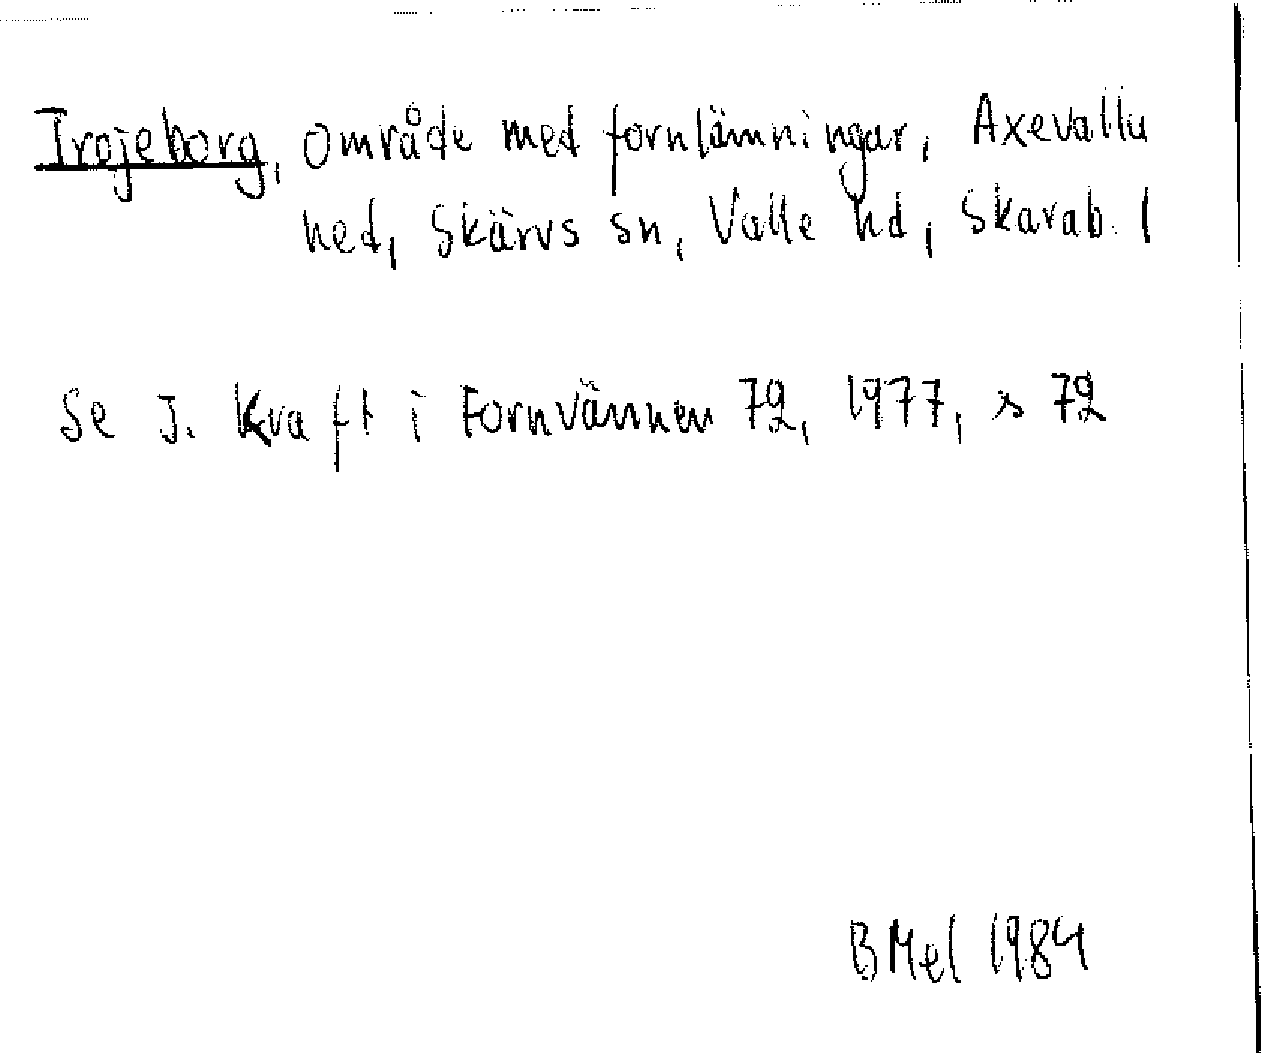 Trojeborg, område med fornlämningar, Axevalla
hed, Skärvs sn, Valle hd, Skarab. l
Se J. Kraft i Fornvännen 72, 1977, s 72
BMel 1984